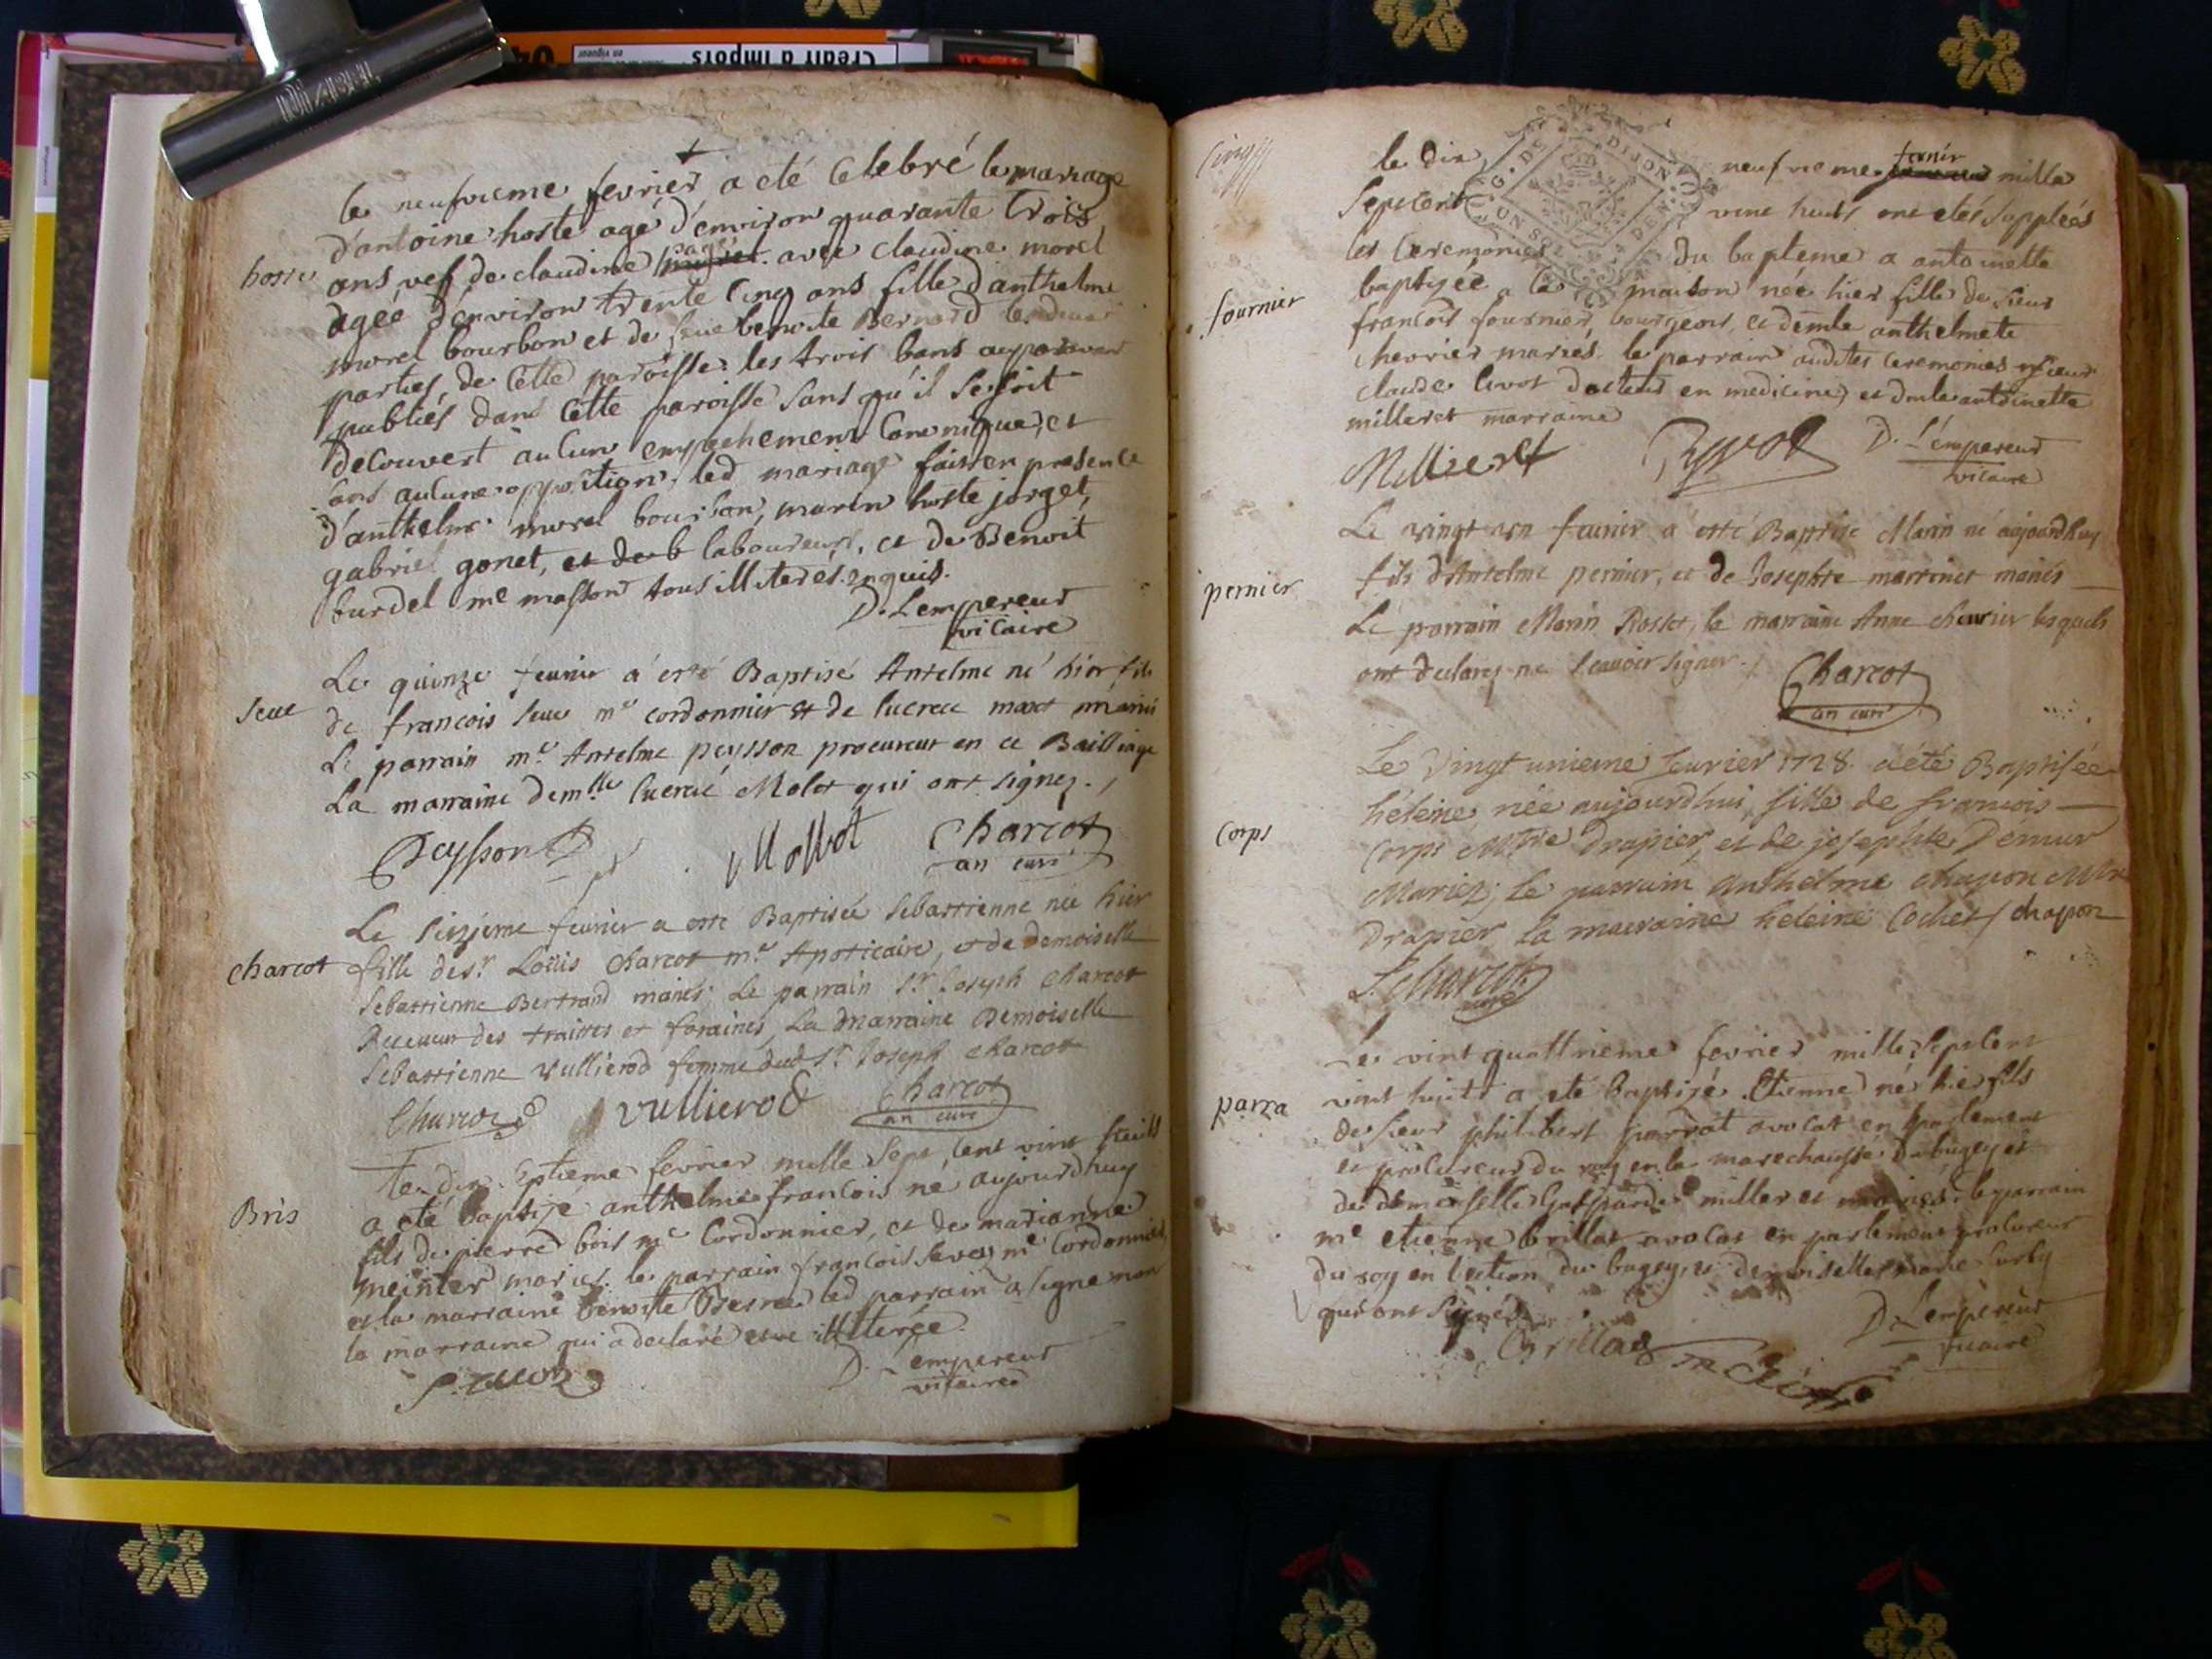 DIABEL
Crédit d'impôts
en vigueur
le neufvieme fevrier a eté Celebré le mariage
d'antoine hoste agé d'environ quarante trois
hoste
ans vef de claudine pagé avec claudine morel
agéé d'environ trente cinq ans fille d'anthelme
morel bourbon et de feue benoite Bernard les deux
parties de Cette paroisse les trois bans auparavant
publiés dans Cette paroisse sans qu'il se soit
decouvert aucun empechement Canonique, et
sans aucune opposition, led mariage fait en presence
d'anthelme morel bourbon, marin hoste jorget,
gabriel gonet, et de b laboureurs, et de Benoit
burdel me masson tous illiterés enquis.
D. Lempereur
vicaire
Le quinze feurier a esté Baptisé Antelme né hier fils
Seue
de francois seue me cordonnier et de lucrece mariés
Le parrain me Antelme peysson procureur en ce Bailliage
La marraine demlle lucrece Molot qui ont signez.
Peysson
Mollot
Charcot
an curé
Le sizieme feurier a esté Baptisée Sebastienne née hier
charcot
fille de sr Loüis Charcot me Apoticaire, et de demoiselle
Sebastienne Bertrand mariés; Le parrain sr Joseph Charcot
Receueur des traittes et foraines, La marraine Demoiselle
Sebastienne vullierod femme dud sr Joseph Charcot
Charcot
vullierod
Charcot
an curé
Le dix Septieme fevrier mille Sept Cent vint huitt
a eté baptizé anthelme francois né aujourdhuy
Bris
fils de pierre bois me Cordonnier, et de marianne
meinter mariés. le parrain francois seve me Cordonnier,
et la marraine benoite led parrain a signé non
la marraine qui a declaré estre illiterée.
D. Lempereur
vicaire
cinq
G. DE DIJON
le dix neufvieme fevrier mille
Septcent vint huitt ont etés suppleés
les Ceremonies du bapteme a antoinette
baptizée a la maison née hier fille de sieur
fournier
francois fournier, bourgeois, et demle anthelmete
chevrier mariés. le parrain audites Ceremonies sieur
claude livot docteur en medicine, et demle antoinette
milleret marraine
Millieret
D. Lempereur
vicaire
Le vingt un feurier a esté Baptisé Marin né aujourdhuy
pernier
fils d'Antelme pernier, et de Josephte martinet mariés
Le parrain Marin Rosset, la marraine Anne cheurier lesquels
ont declarez ne scauoir signer.
Charcot
an curé
Le Vingt unieme feurier 1728. a été Baptisée
heleine, née aujourdhui, fille de francois
Corps
Corps Mtre Drapier, et de josephte Demur
Mariez; Le parrain anthelme chapon Mtre
Drapier La marraine heleine Cochet / chapon
Charcot
curé
Le vint quattrieme fevrier mille Septcent
vint huitt a eté Baptizé Etienne né hier fils
parra
de sieur philibert parrat avocat en parlement
et procureur du roy en la marechaussée du bugey et
de demoiselle gasparde milleret mariés le parrain
me etienne brillat avocat en parlement procureur
du roy en l'ection du bugey, et demoiselle marie
qui ont signés
Brillat
D. Lempereur
vicaire